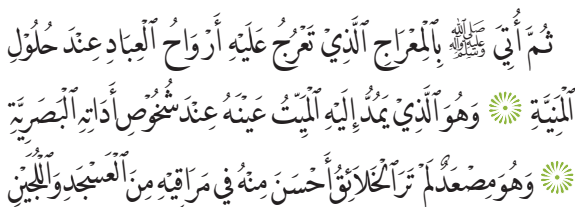 ثُمَّ أُتِيَ ﷺ بِالْمِعْرَاجِ الَّذِيْ تَعْرُجُ عَلَيْهِ أَرْوَاحُ الْعِبَادِ عِنْدَ حُلُوْلِ
الْمَنِيَّةِ ۞ وَهُوَ الَّذِيْ يَمُدُّ إِلَيْهِ الْمَيِّتُ عَيْنَهُ عِنْدَ شُخُوْصِ أَدَاتِهِ الْبَصَرِيَّةِ
۞ وَهُوَ مِصْعَدٌ لَمْ تَرَ الْخَلَائِقُ أَحْسَنَ مِنْهُ فِي مَرَاقِيْهِ مِنَ الْعَسْجَدِ وَاللُّجَيْنِ